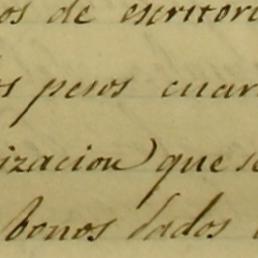 os de escritori
os pesos cuar
izacion) que se
bonos dados